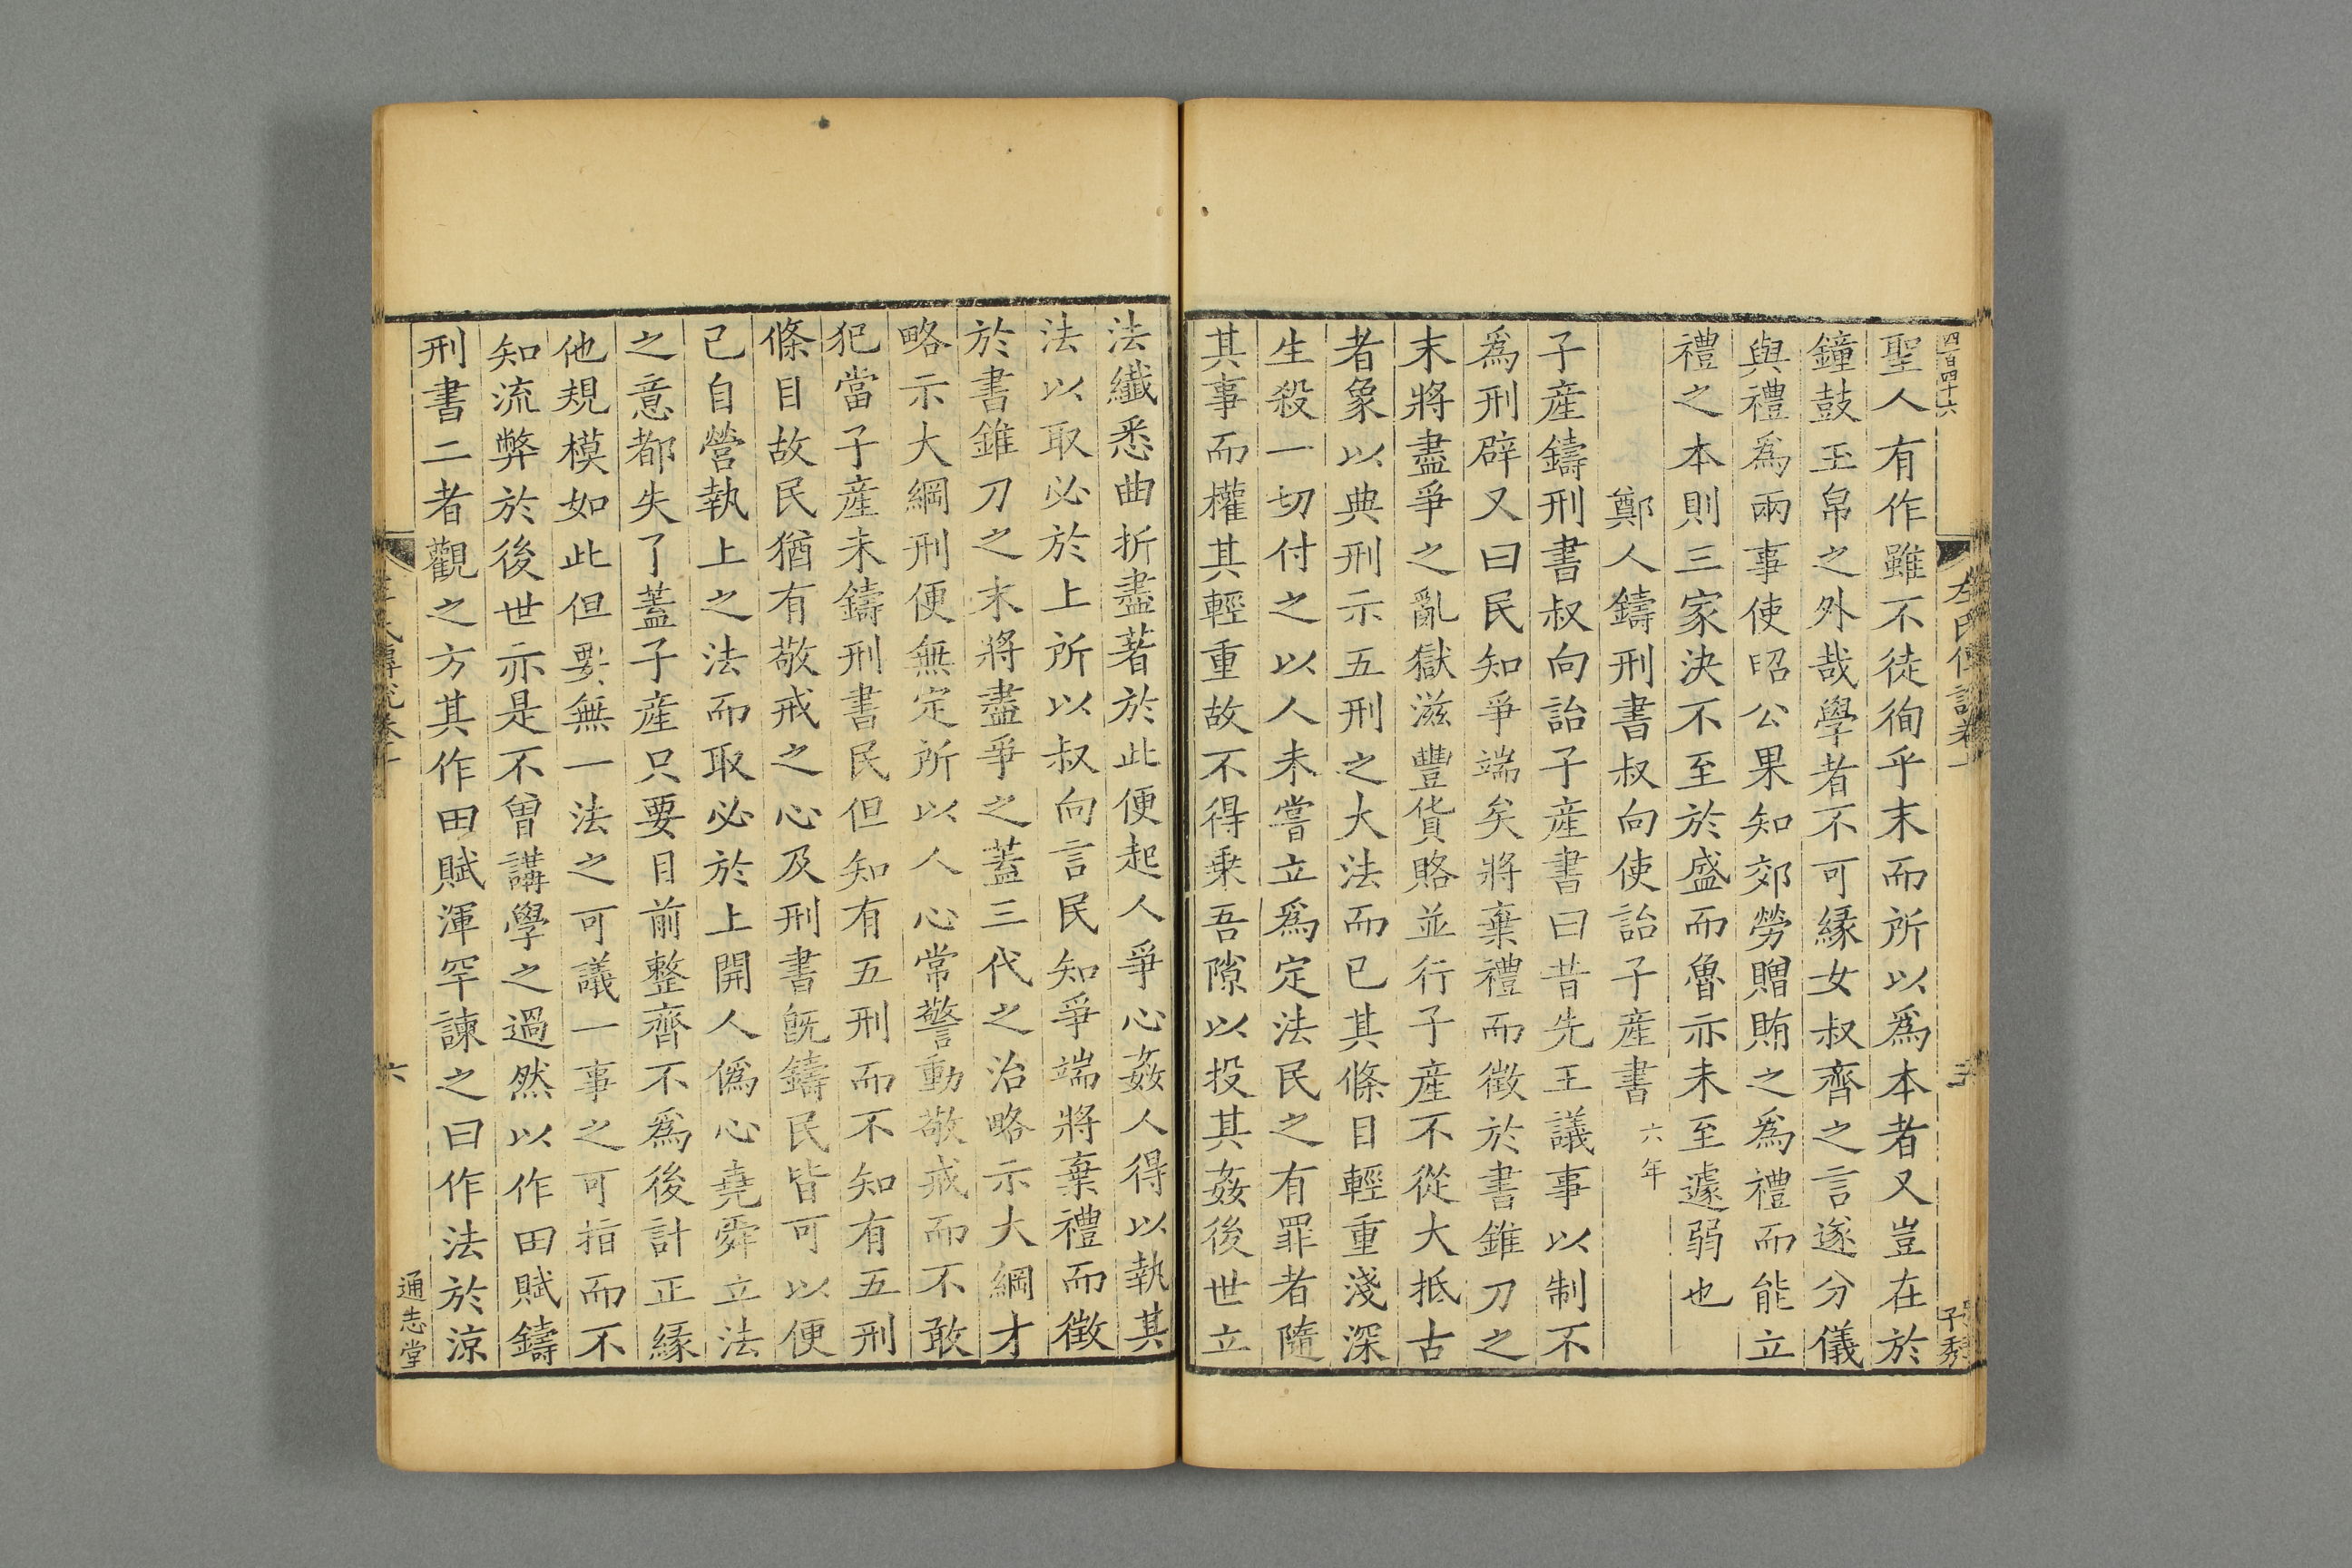 四百四十六
聖人有作雖不徒徇乎末而所以爲本者又豈在於
鐘鼓玉帛之外哉學者不可緣女叔齊之言遂分儀
與禮爲兩事使昭公果知郊勞贈賄之爲禮而能立
禮之本則三家決不至於盛而魯亦未至遽弱也
鄭人鑄刑書叔向使詒子產書六年
子產鑄刑書叔向詒子產書曰昔先王議事以制不
爲刑辟又曰民知爭端矣將棄禮而徵於書錐刀之
末將盡爭之亂獄滋豐貨賂並行子產不從大抵古
者象以典刑示五刑之大法而已其條目輕重淺深
生殺一切付之以人未嘗立爲定法民之有罪者隨
其事而權其輕重故不得乗吾隙以投其姦後世立
法纖悉曲折盡著於此便起人爭心姦人得以執其
法以取必於上所以叔向言民知爭端將棄禮而徵
於書錐刀之末將盡爭之蓋三代之治略示大綱才
略示大綱刑便無定所以人心常警動敬戒而不敢
犯當子產未鑄刑書民但知有五刑而不知有五刑
條目故民猶有敬戒之心及刑書既鑄民皆可以便
己自營執上之法而取必於上開人僞心堯舜立法
之意都失了蓋子產只要目前整齊不爲後計正緣
他規模如此但要無一法之可議一事之可指而不
知流弊於後世亦是不曾講學之過然以作田賦鑄
刑書二者觀之方其作田賦渾罕諫之曰作法於涼
六
通志堂